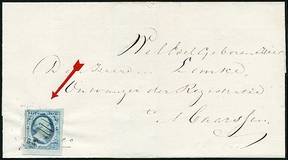 Wel Edel Geboren Heer
De Heer Lemke
Ontvanger der Registratie
te Maarssen